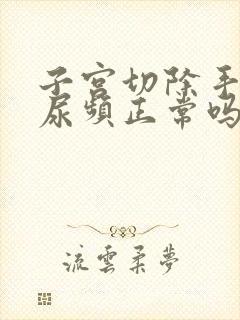 子宫切除手
尿频正常吗
流雲柔夢